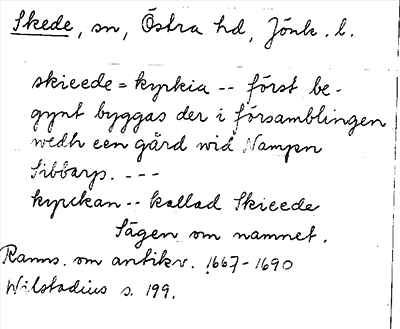 Skede, sn, Östra hd, Jönk. l.
skieede = kyrkia -- först be-
gynt byggas der i församblingen
wedh een gård wid Nampn
Sibbarp. ---
kyrckan -- kallad Skieede
Sägen om namnet.
Ranns. om antikv. 1667-1690
Wilstadius s. 199.